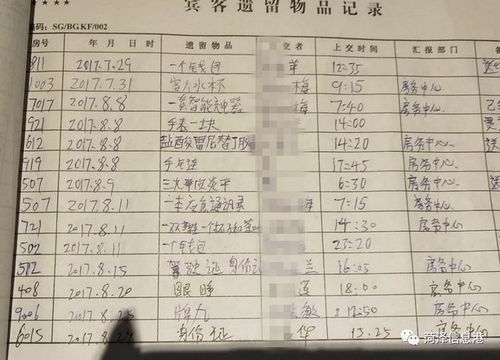 宾客遗留物品记录
编码: SG/BGKF/002
房号 年 月 日 时 遗留物品 交者 上交时间 汇报部门
811 2017.7.29 一个钱包 12:35
1003 2017.7.31 客人水杯 梅 9:15 房务中心
7017 2017.8.8 一套智能神器 7:40 房务中心
921 2017.8.8 手表一块 14:00
612 2017.8.8 盐酸雷尼替丁胶 14:20 房务中心
919 2017.8.8 手 17:45 房务中心
507 2017.8.9 6:30 房务中心
507 2017.8.11 一本 通讯录 梅 7:15 房务中心
721 2017.8.11 14:30 房务中心
502 2017.8.11 一个钱包 23:20
512 2017.8.15 驾驶证 身份证 兰 16:05 房务中心
408 2017.8.20 眼 莲 18:00 房务中心
9006 2017.8.25 敏 12:50 房务中心
6015 2017.8. 身份证 华 13.25 房务中心
菏泽信息港